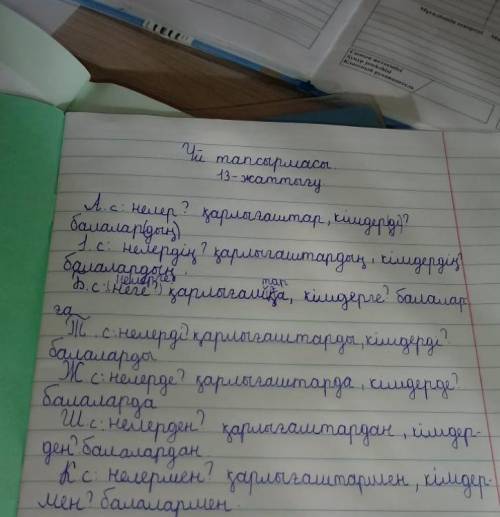 Үй тапсырмасы.
13-жаттығу
А.с: нелер? қарлығаштар, кімдер(ді)?
балалар(дың)
І.с: нелердің? қарлығаштардың, кімдердің?
балалардың.
нелерге?
тар
Б.с: (неге?) қарлығашқа, кімдерге? балалар-
ға
Т.с: нелерді? қарлығаштарды, кімдерді?
балаларды
Ж.с: нелерде? қарлығаштарда, кімдерде?
балаларда
Ш.с: нелерден? қарлығаштардан, кімдер-
ден? балалардан.
К.с: нелермен? қарлығаштармен, кімдер-
мен? балалармен.